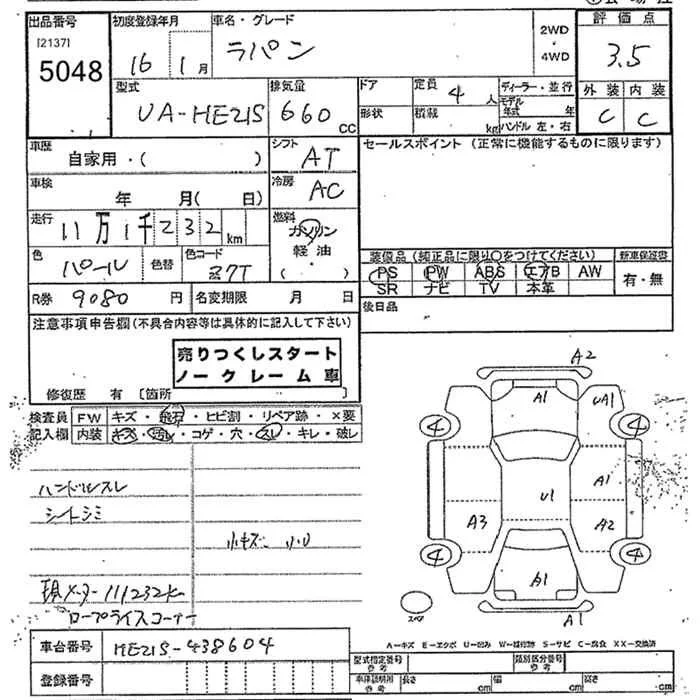 出品番号
[2137]
5048
初度登録年月
16 1月
車名・グレード
ラパン
2WD
・
4WD
評価点
3.5
外装 内装
C C
型式
UA-HE21S
排気量
660 CC
ドア
形状
定員 4人
積載 kg
ディーラー・並行
モデル年式 年
ハンドル 左・右
車歴
自家用・( )
シフト
AT
セールスポイント (正常に機能するものに限ります)
車検
年 月( 日)
冷房
AC
走行
11万1千232km
燃料
ガソリン
軽油
( ・ )
色
パール
色替
色コード
Z7T
装備品 (純正品に限り○をつけてください)
新車保証書
PS PW ABS エアB AW
有・無
SR ナビ TV 本革
R券 9080円
名変期限 月 日
後日品
注意事項申告欄(不具合内容等は具体的に記入して下さい)
売りつくしスタート
ノークレーム車
修復歴 有 [箇所 ]
検査員
記入欄
FW キズ・飛石・ヒビ割・リペア跡・×要
内装 キズ・汚レ・コゲ・穴・スレ・キレ・破レ
ハンドルスレ
シートシミ
小キズ 小U
現メーター111232km
ロープライスコーナー
A2
A1
UA1
4
4
A1
U1
A3
A2
4
4
A1
スペア
A1
A-キズ E-エクボ U-凹み W-補修跡 S-サビ C-腐食 XX-交換済
車台番号 HE21S-438604
登録番号
型式指定番号
参考
類別区分番号
参考
車体説明用
参考
長さ cm
幅 cm
高さ cm